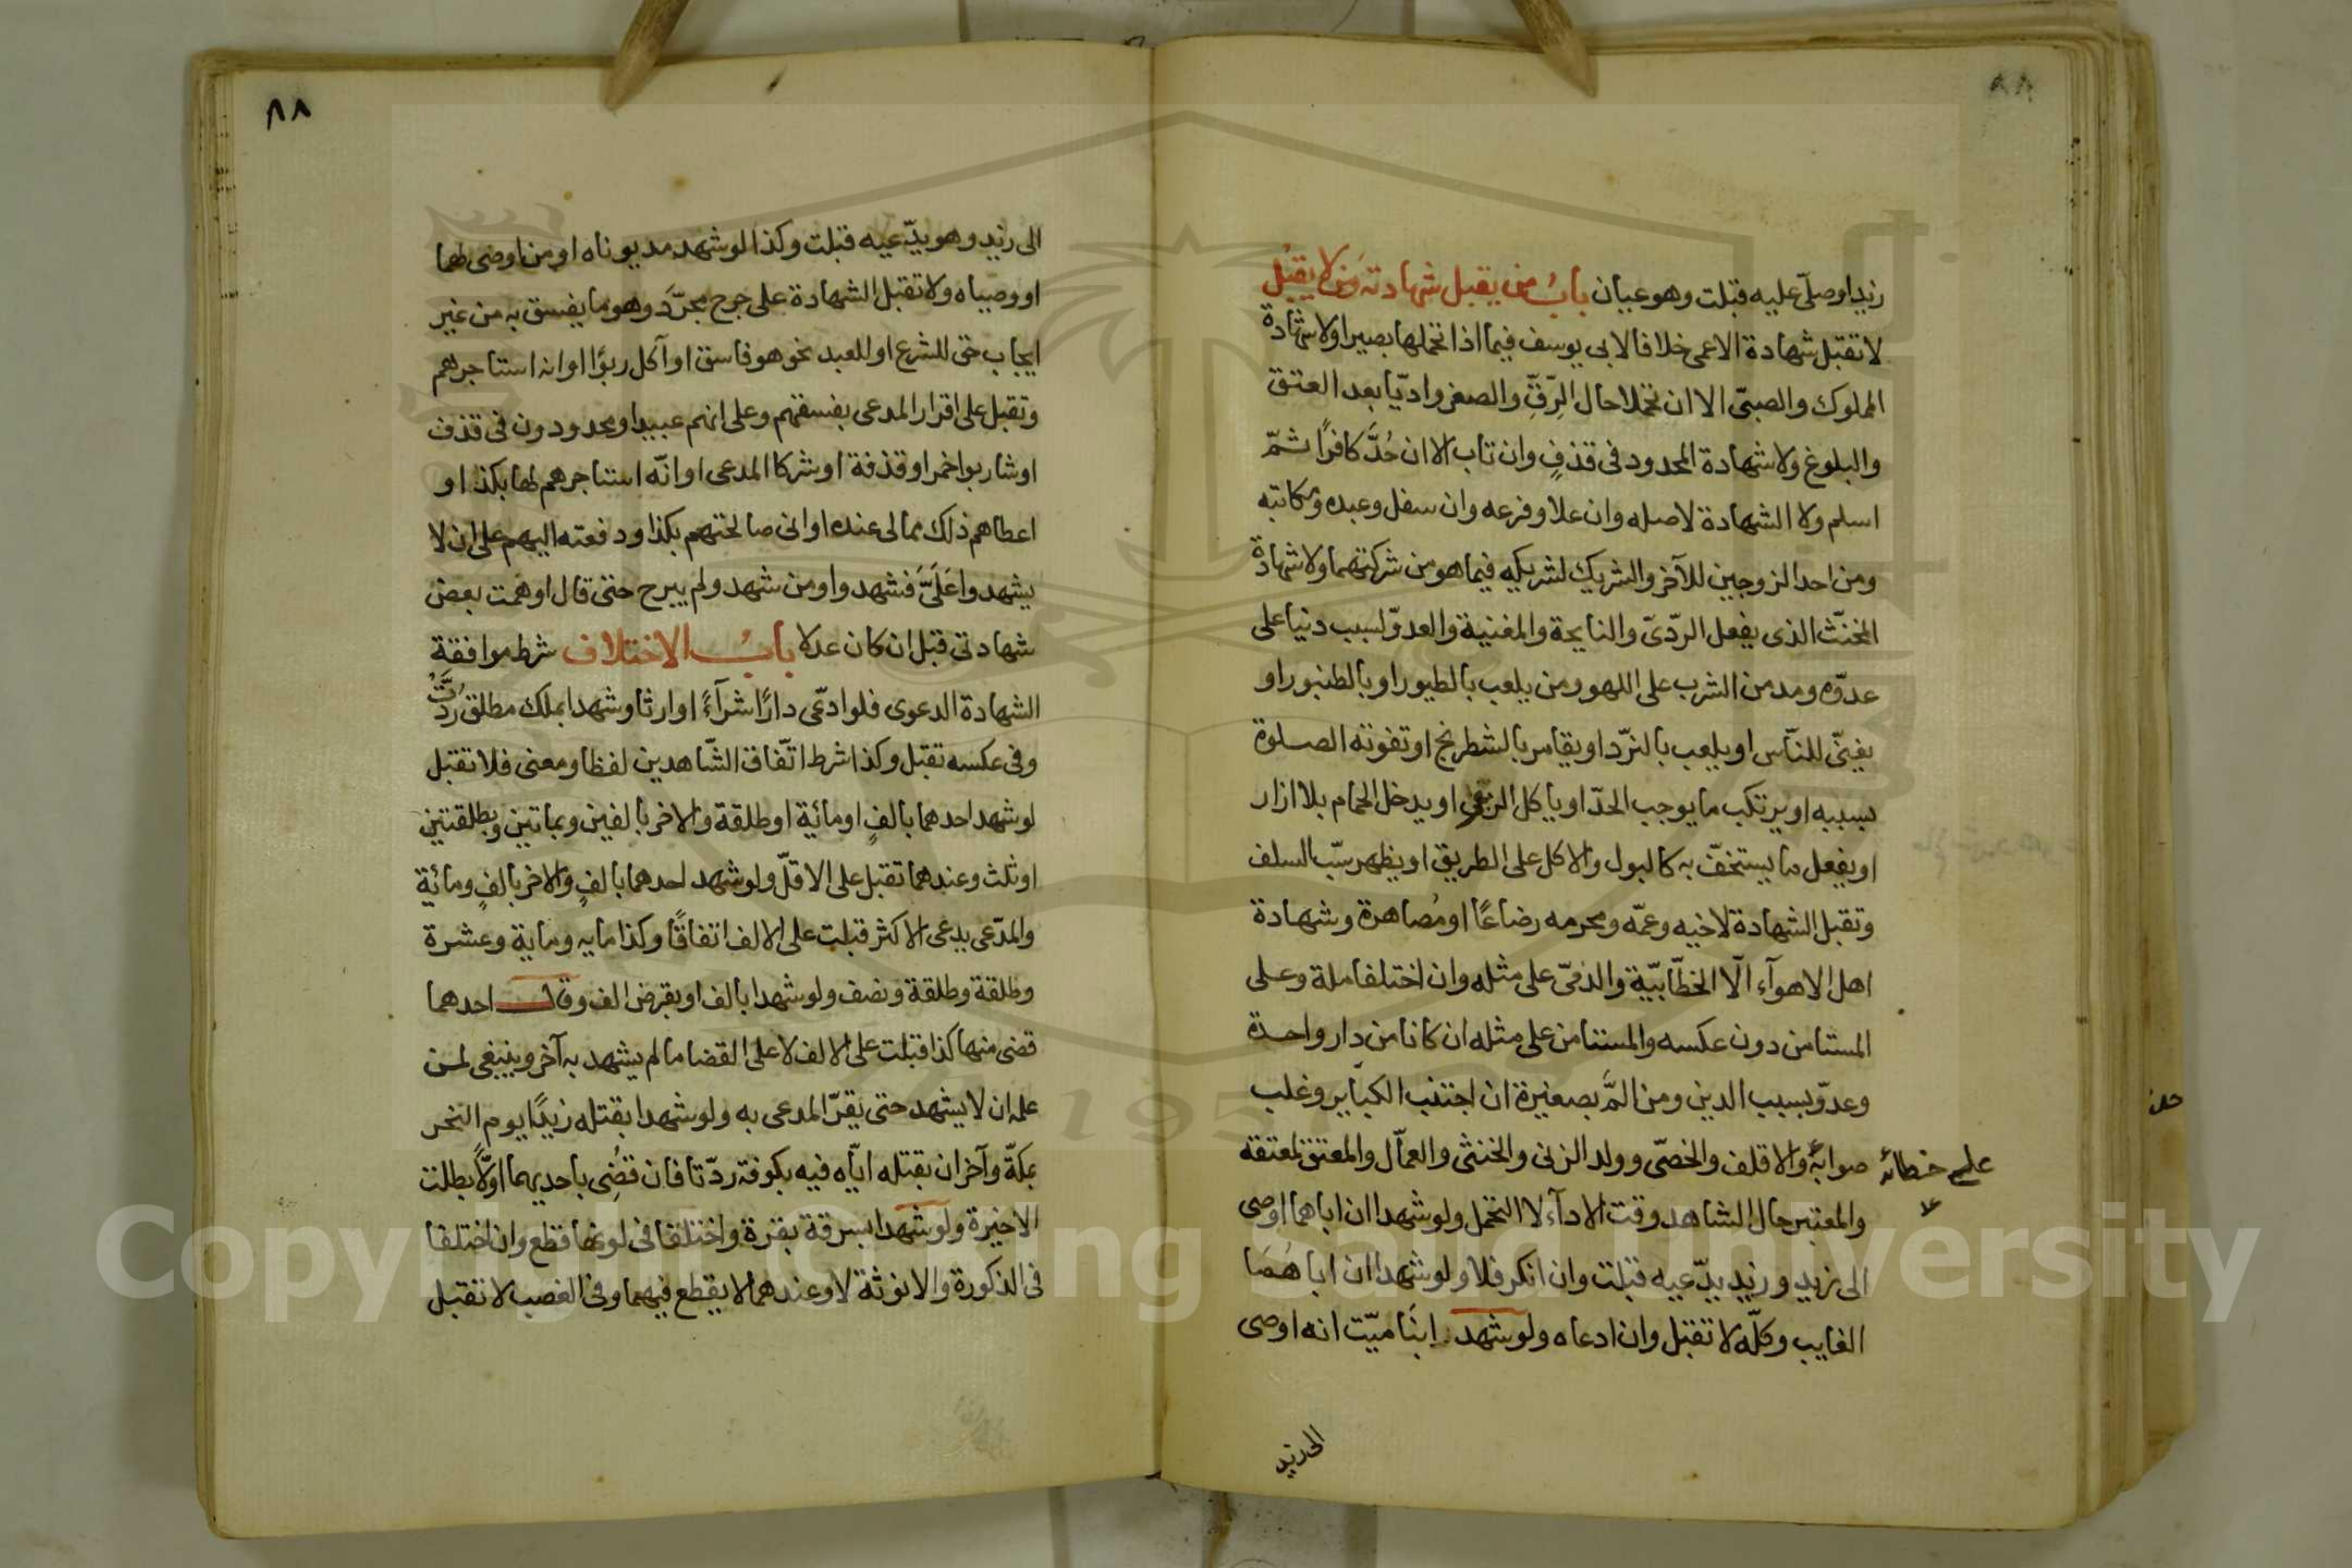 ٨٨
زيد اوصلى عليه قبلت وهو عيان باب من يقبل شهادته ومن لا يقبل
لا تقبل شهادة الاعمى خلافا لابى يوسف فيما اذا تحملها بصيرا ولا شهادة
المملوك والصبىّ الا ان تحملا حال الرِّقِّ والصغر وادّيا بعد العتق
والبلوغ ولا شهادة المحدود فى قذفٍ وان تاب الا ان حُدَّ كافرًا ثمّ
اسلم ولا الشهادة لاصله وان علا وفرعه وان سفل وعبده ومكاتبه
ومن احد الزوجين للآخر والشريك لشريكه فيما هو من شركتهما ولا شهادة
المخنّث الذى يفعل الردّىّ والنايحة والمغنية والعدوّ لسبب دنيا على
عدوّه ومدمن الشرب على اللهو ومن يلعب بالطيور او بالطنبور او
يغنّى للنّاس او يلعب بالنرّد او يقامر بالشطرنج او تفوته الصلوة
بسببه او يرتكب ما يوجب الحدّ او ياكل الربوا او يدخل الحمام بلا ازار
او يفعل ما يستخفّ به كالبول والاكل على الطريق او يظهر سبّ السلف
وتقبل الشهادة لاخيه وعمّه ومحرمه رضاعًا او مُصاهرة وشهادة
اهل الاهوآء الّا الخطّابيّة والذمىّ على مثله وان اختلفا ملة وعلى
المستامن دون عكسه والمستامن على مثله ان كانا من دار واحدة
وعدوّ بسبب الدين ومن المَّ بصغيرة ان اجتنب الكبآير وغلب
صوابهُ والاقلف والخصّى وولد الزنى والخنثى والعمّال والمعتق لمعتقه
على خطائه
والمعتبر حال الشاهد وقت الادآء لا التحمل ولو شهدا ان اباهما اوصى
الى زيد وزيد يدّعيه قبلت وان انكر فلا ولو شهدا ان اباهمَا
الغايب وكلّه لا تقبل وان ادعاه ولو شهد ابنا ميّت انه اوصى
الى زيد
٨٨
الى زيد وهو يدّعيه قبلت وكذا لو شهد مديوناه او من اوصى لهما
او وصياه ولا تقبل الشهادة على جرح مجرّدَ وهو ما يفسق به من غير
ايجاب حق للشرع او للعبد نحو هو فاسق او آكل ربوًا او انه استاجرهم
وتقبل على اقرار المدعى بفسقهم وعلى انهم عبيد او محدودون فى قذف
او شاربوا خمر او قذفة او شركا المدعى او انّه استاجرهم لها بكذا او
اعطاهم ذلك مما لى عنده او انى صالحتهم بكذا ودفعته اليهم على ان لا
يشهدوا عَلَىَّ فشهدوا ومن شهد ولم يبرح حتى قال اوهمت بعض
شهادتى قبل ان كان عدلا بابُ الاختلاف شرط موافقة
الشهادة الدعوى فلو ادّعى دارًا شرآءً او ارثا وشهدا بملك مطلق رُدَّتْ
وفى عكسه تقبل وكذا شرط اتّفاق الشّاهدين لفظا ومعنى فلا تقبل
لو شهد احدهما بالفٍ او مائية او طلقة والاخر بالفين وبمايتين وبطلقتين
او ثلث وعندهما تقبل على الاقلّ ولو شهد احدهما بالفٍ والاخر بالفٍ ومائية
والمدّعى يدعى الاكثر قبلت على الالف اتفاقًا وكذا مايه وماية وعشرة
وطلقة وطلقة ونصف ولو شهدا بالف او بقرض الف وقال احدهما
قضى منها كذا قبلت على الالف لا على القضا ما لم يشهد به آخر وينبغى لمن
علمه ان لا يشهد حتى يقرّ المدعى به ولو شهدا بقتله زيدًا يوم النحر
بمكّة وآخران بقتله ايّاه فيه بكوفة ردّتا فان قضِى باحديهما اوّلًا بطلت
الاخيرة ولو شهدا بسرقة بقرة واختلفا فى لونها قطع وان اختلفا
فى الذكورة والانوثة لا وعندهما لا يقطع فيهما وفى الغصب لا تقبل
Copyright © King Saud University
1957